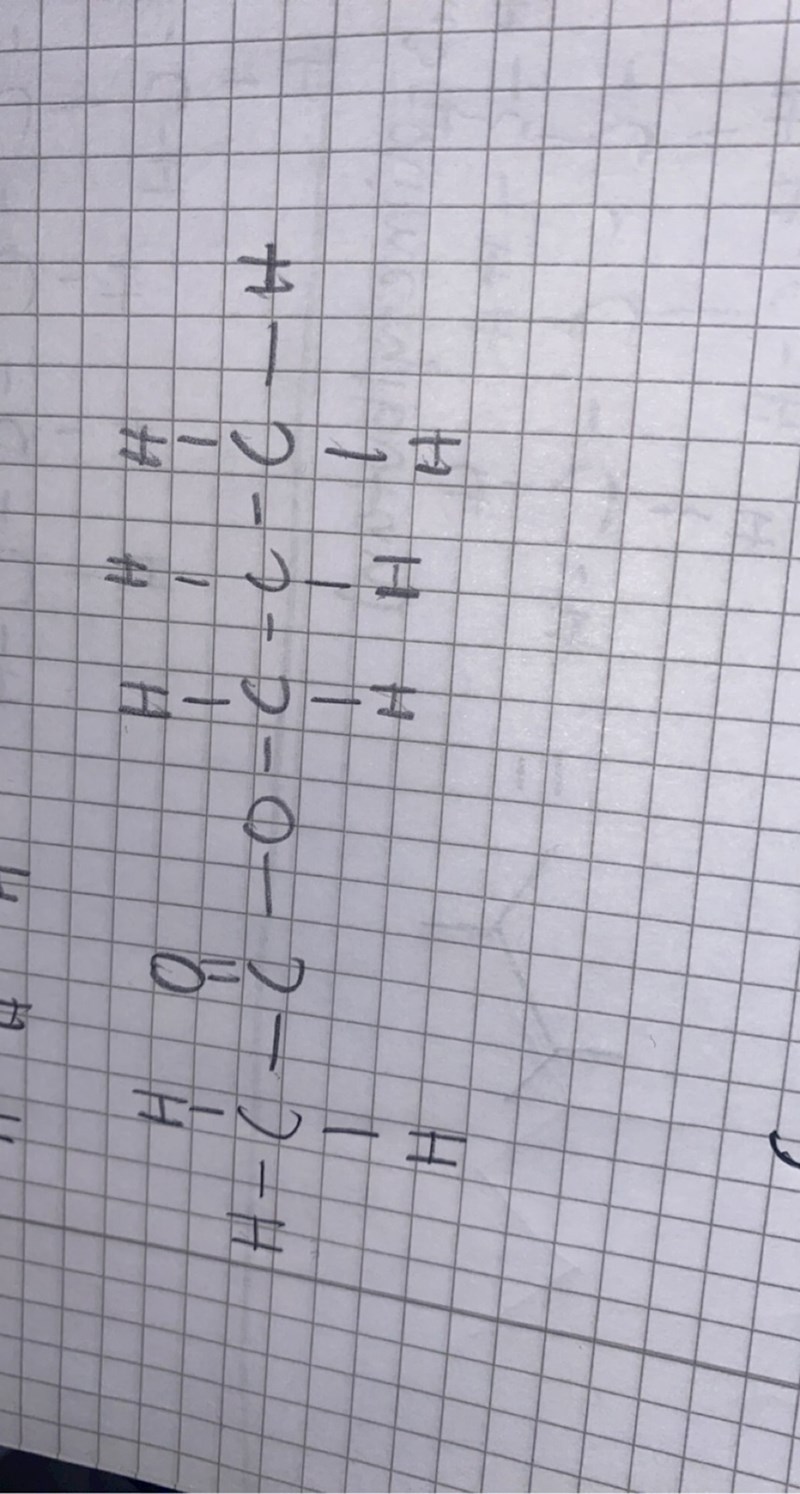 H O H H H
| || | | |
H - C - C - O - C - C - C - H
| | | |
H H H H